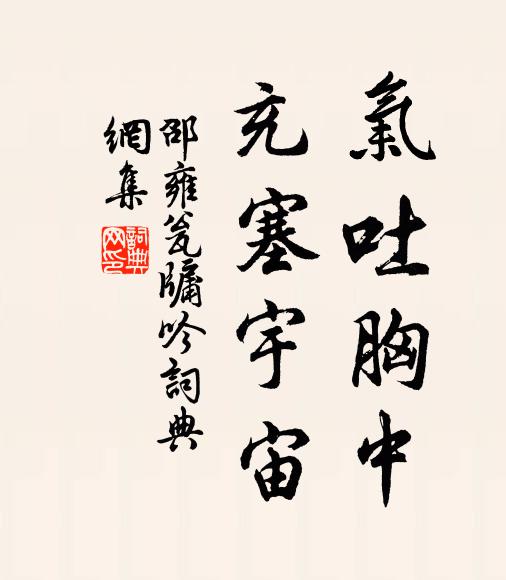 氣吐胸中
充塞宇宙
邵雍瓮牖吟詞典
網集
詞典
网印